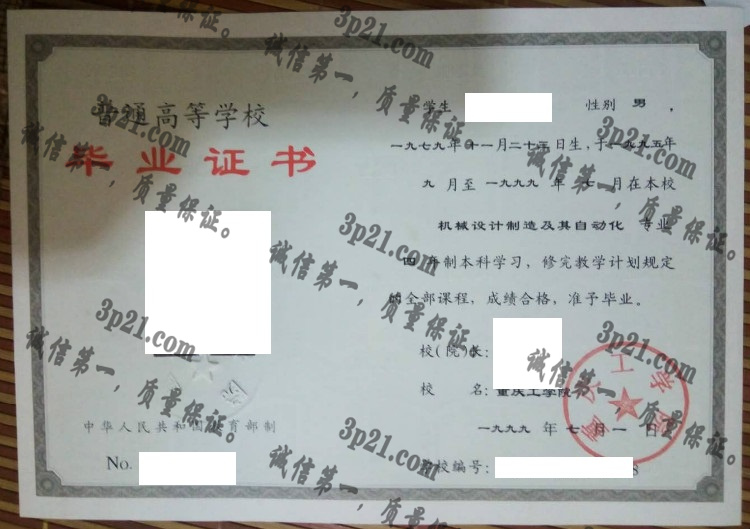 普通高等学校
毕业证书
中华人民共和国教育部制
No.
学生 性别 男 ,
一九七九年十一月二十三日生, 于一九九五年
九 月至 一九九九 年 七 月在本校
机械设计制造及其自动化 专业
四 年制本科学习, 修完教学计划规定
的全部课程, 成绩合格, 准予毕业。
校(院)长:
校 名: 重庆工学院
一九九九 年 七 月 一 日
学校编号: 8
重庆工学院
3p21.com
诚信第一, 质量保证。
3p21.com
诚信第一, 质量保证。
3p21.com
诚信第一, 质量保证。
3p21.com
诚信第一, 质量保证。
3p21.com
诚信第一, 质量保证。
3p21.com
诚信第一, 质量保证。
3p21.com
诚信第一, 质量保证。